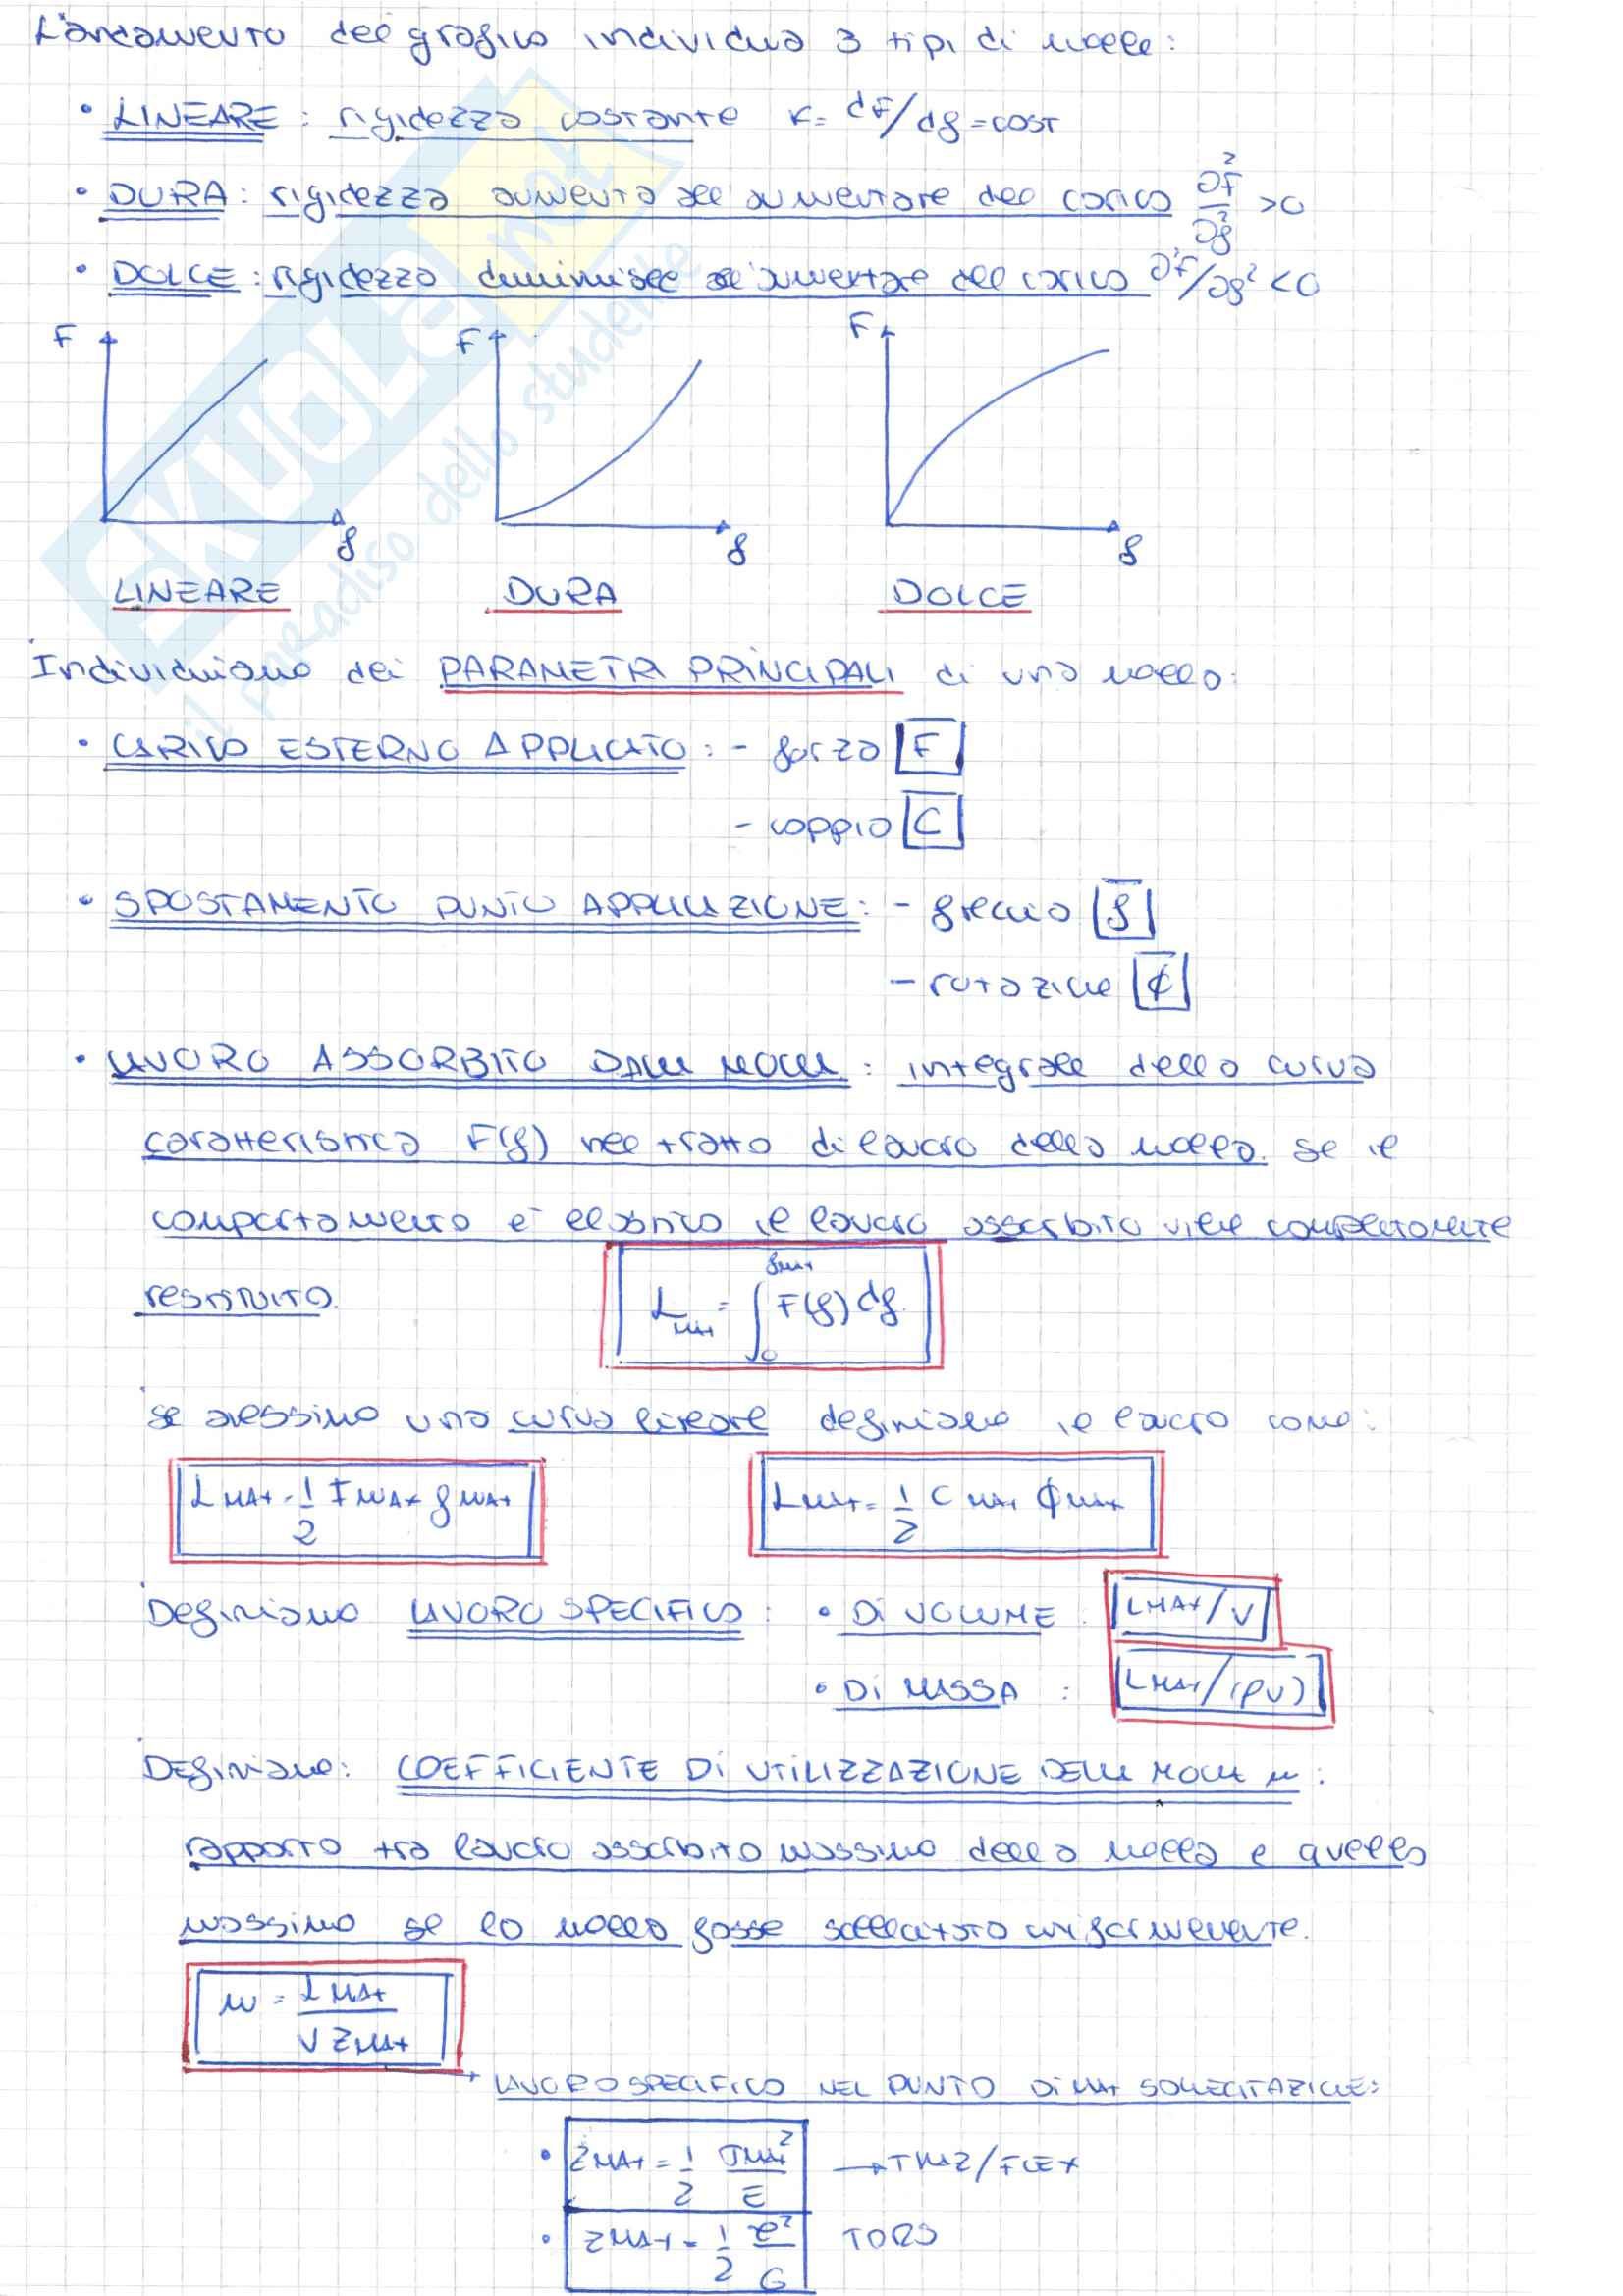 L'andamento del grafico individua 3 tipi di molle:
• LINEARE: rigidezza costante K= dF/df=COST
• DURA: rigidezza aumenta all'aumentare del carico ∂²F/∂f² >0
• DOLCE: rigidezza diminuisce all'aumentare del carico ∂²F/∂f² <0
F F F
f f f
LINEARE DURA DOLCE
Individuiamo dei PARAMETRI PRINCIPALI di una molla:
• CARICO ESTERNO APPLICATO: - forza F
- coppia C
• SPOSTAMENTO PUNTO APPLICAZIONE: - freccia f
- rotazione ϕ
• LAVORO ASSORBITO DALLA MOLLA: integrale della curva
caratteristica F(f) nel tratto di lavoro della molla. Se il
comportamento è elastico il lavoro assorbito viene completamente
restituito.
L MAX = ∫₀^fMAX F(f) df
se avessimo una curva lineare definiamo il lavoro come:
L MAX = 1/2 F MAX f MAX L MAX = 1/2 C MAX ϕ MAX
Definiamo LAVORO SPECIFICO: • Di VOLUME: L MAX/V
• Di MASSA: L MAX/(ρV)
Definiamo: COEFFICIENTE Di UTILIZZAZIONE DELLA MOLLA m:
rapporto tra lavoro assorbito massimo della molla e quello
massimo se la molla fosse sollecitata uniformemente.
m = L MAX / V Z MAX
LAVORO SPECIFICO NEL PUNTO Di MAX SOLLECITAZIONE:
• Z MAX = 1/2 σMAX²/E → TRAZ/FLEX
• Z MAX = 1/2 τ²/G TORS
SKUOLA.net
il paradiso dello studente